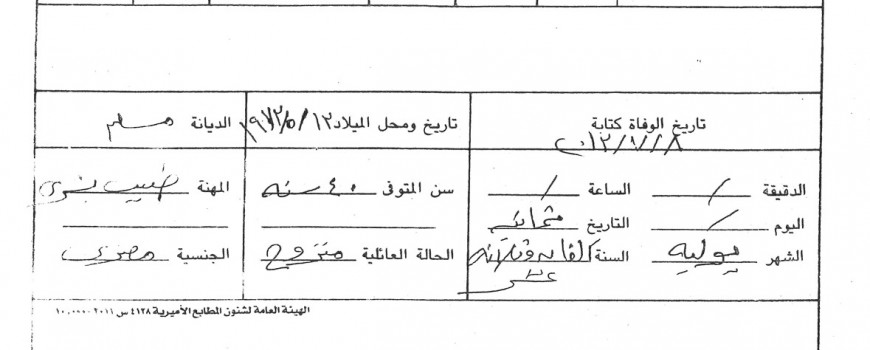 تاريخ الوفاة كتابة تاريخ ومحل الميلاد ١٢/٥/١٩٧٢ الديانة مسلم
الدقيقة / الساعة / سن المتوفى ٤٠ سنه المهنة طبيب بشرى
اليوم / التاريخ ثمانية
الشهر يوليه السنة الفان وثلاثة الحالة العائلية متزوج الجنسية مصرى
عشر
الهيئة العامة لشئون المطابع الأميرية ٤١٢٨ س ٢٠١١ - ١٠,٠٠٠